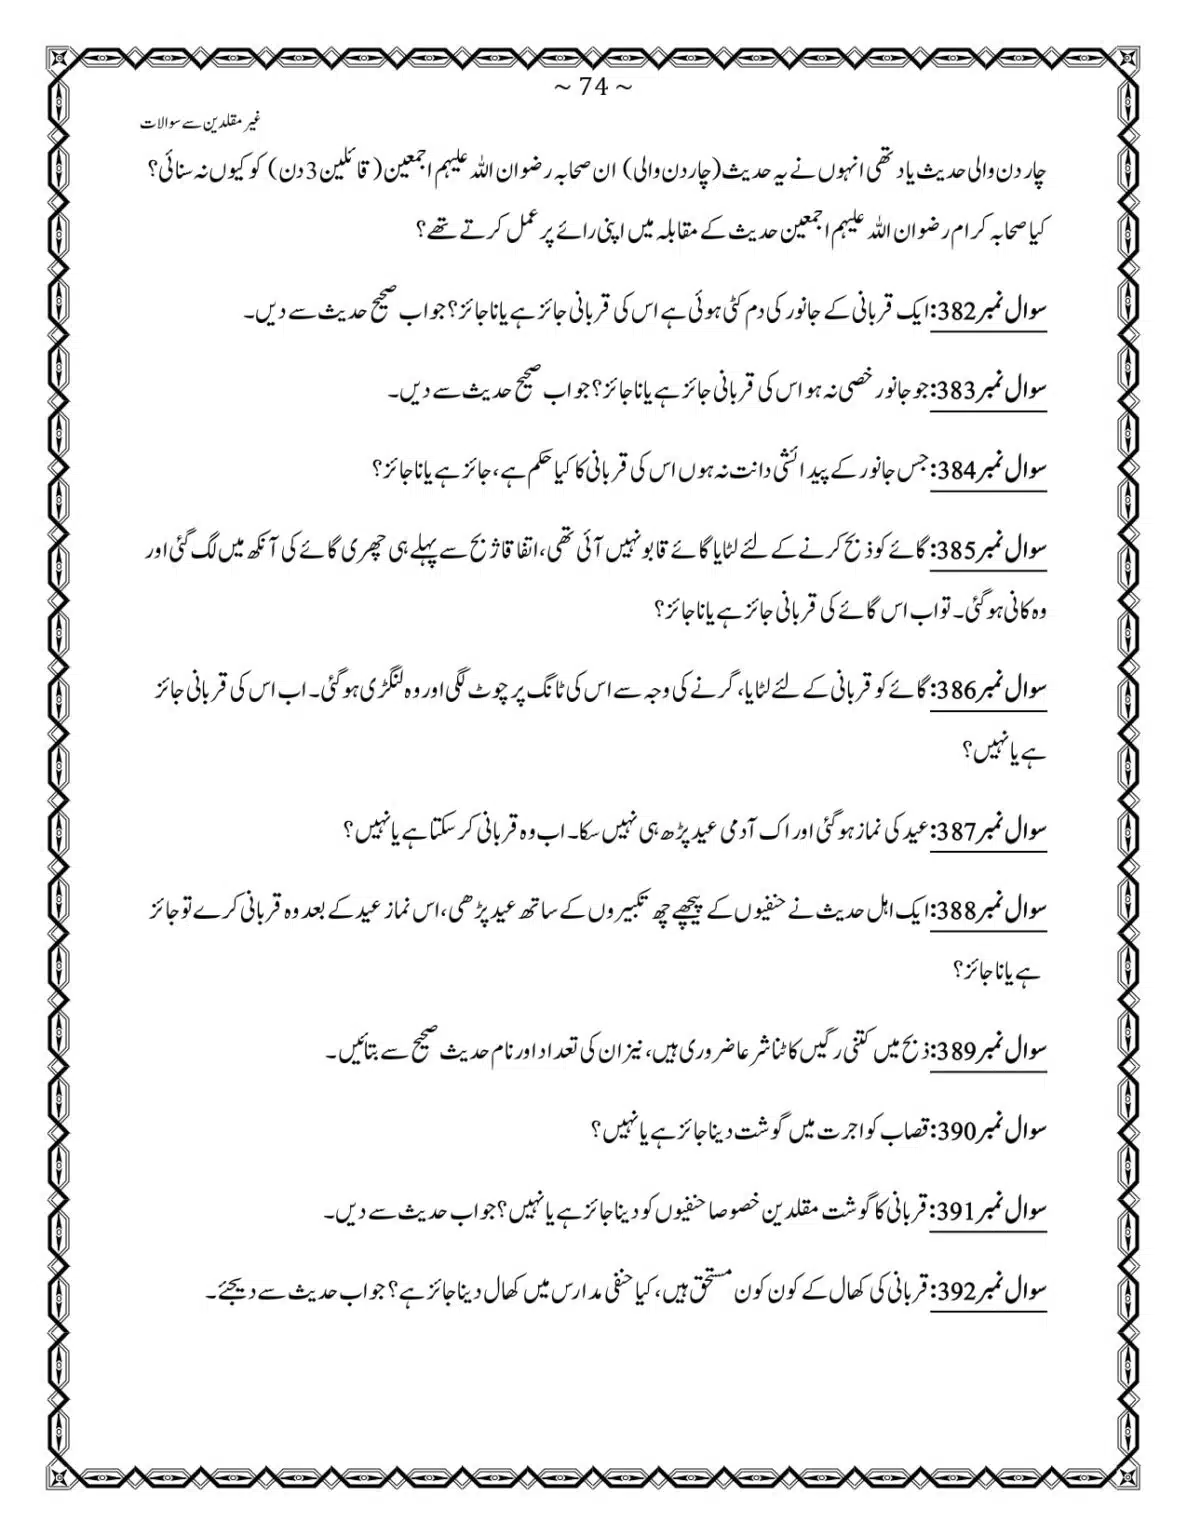 ~ 74 ~
غیر مقلدین سے سوالات
چار دن والی حدیث یاد تھی انہوں نے یہ حدیث (چار دن والی) ان صحابہ رضوان اللہ علیہم اجمعین (قائلین 3 دن) کو کیوں نہ سنائی؟
کیا صحابہ کرام رضوان اللہ علیہم اجمعین حدیث کے مقابلہ میں اپنی رائے پر عمل کرتے تھے؟
سوال نمبر 382: ایک قربانی کے جانور کی دم کٹی ہوئی ہے اس کی قربانی جائز ہے یا ناجائز؟ جواب صحیح حدیث سے دیں۔
سوال نمبر 383: جو جانور خصی نہ ہو اس کی قربانی جائز ہے یا ناجائز؟ جواب صحیح حدیث سے دیں۔
سوال نمبر 384: جس جانور کے پیدائشی دانت نہ ہوں اس کی قربانی کا کیا حکم ہے، جائز ہے یا ناجائز؟
سوال نمبر 385: گائے کو ذبح کرنے کے لئے لٹایا گائے قابو نہیں آئی تھی، اتفاقا ذبح سے پہلے ہی چھری گائے کی آنکھ میں لگ گئی اور
وہ کانی ہوگئی۔ تو اب اس گائے کی قربانی جائز ہے یا ناجائز؟
سوال نمبر 386: گائے کو قربانی کے لئے لٹایا، گرنے کی وجہ سے اس کی ٹانگ پر چوٹ لگی اور وہ لنگڑی ہوگئی۔ اب اس کی قربانی جائز
ہے یا نہیں؟
سوال نمبر 387: عید کی نماز ہوگئی اور اک آدمی عید پڑھ ہی نہیں سکا۔ اب وہ قربانی کر سکتا ہے یا نہیں؟
سوال نمبر 388: ایک اہل حدیث نے حنفیوں کے پیچھے چھ تکبیروں کے ساتھ عید پڑھی، اس نماز عید کے بعد وہ قربانی کرے تو جائز
ہے یا ناجائز؟
سوال نمبر 389: ذبح میں کتنی رگیں کاٹنا شرعا ضروری ہیں، نیز ان کی تعداد اور نام حدیث صحیح سے بتائیں۔
سوال نمبر 390: قصاب کو اجرت میں گوشت دینا جائز ہے یا نہیں؟
سوال نمبر 391: قربانی کا گوشت مقلدین خصوصا حنفیوں کو دینا جائز ہے یا نہیں؟ جواب حدیث سے دیں۔
سوال نمبر 392: قربانی کی کھال کے کون کون مستحق ہیں، کیا حنفی مدارس میں کھال دینا جائز ہے؟ جواب حدیث سے دیجئے۔